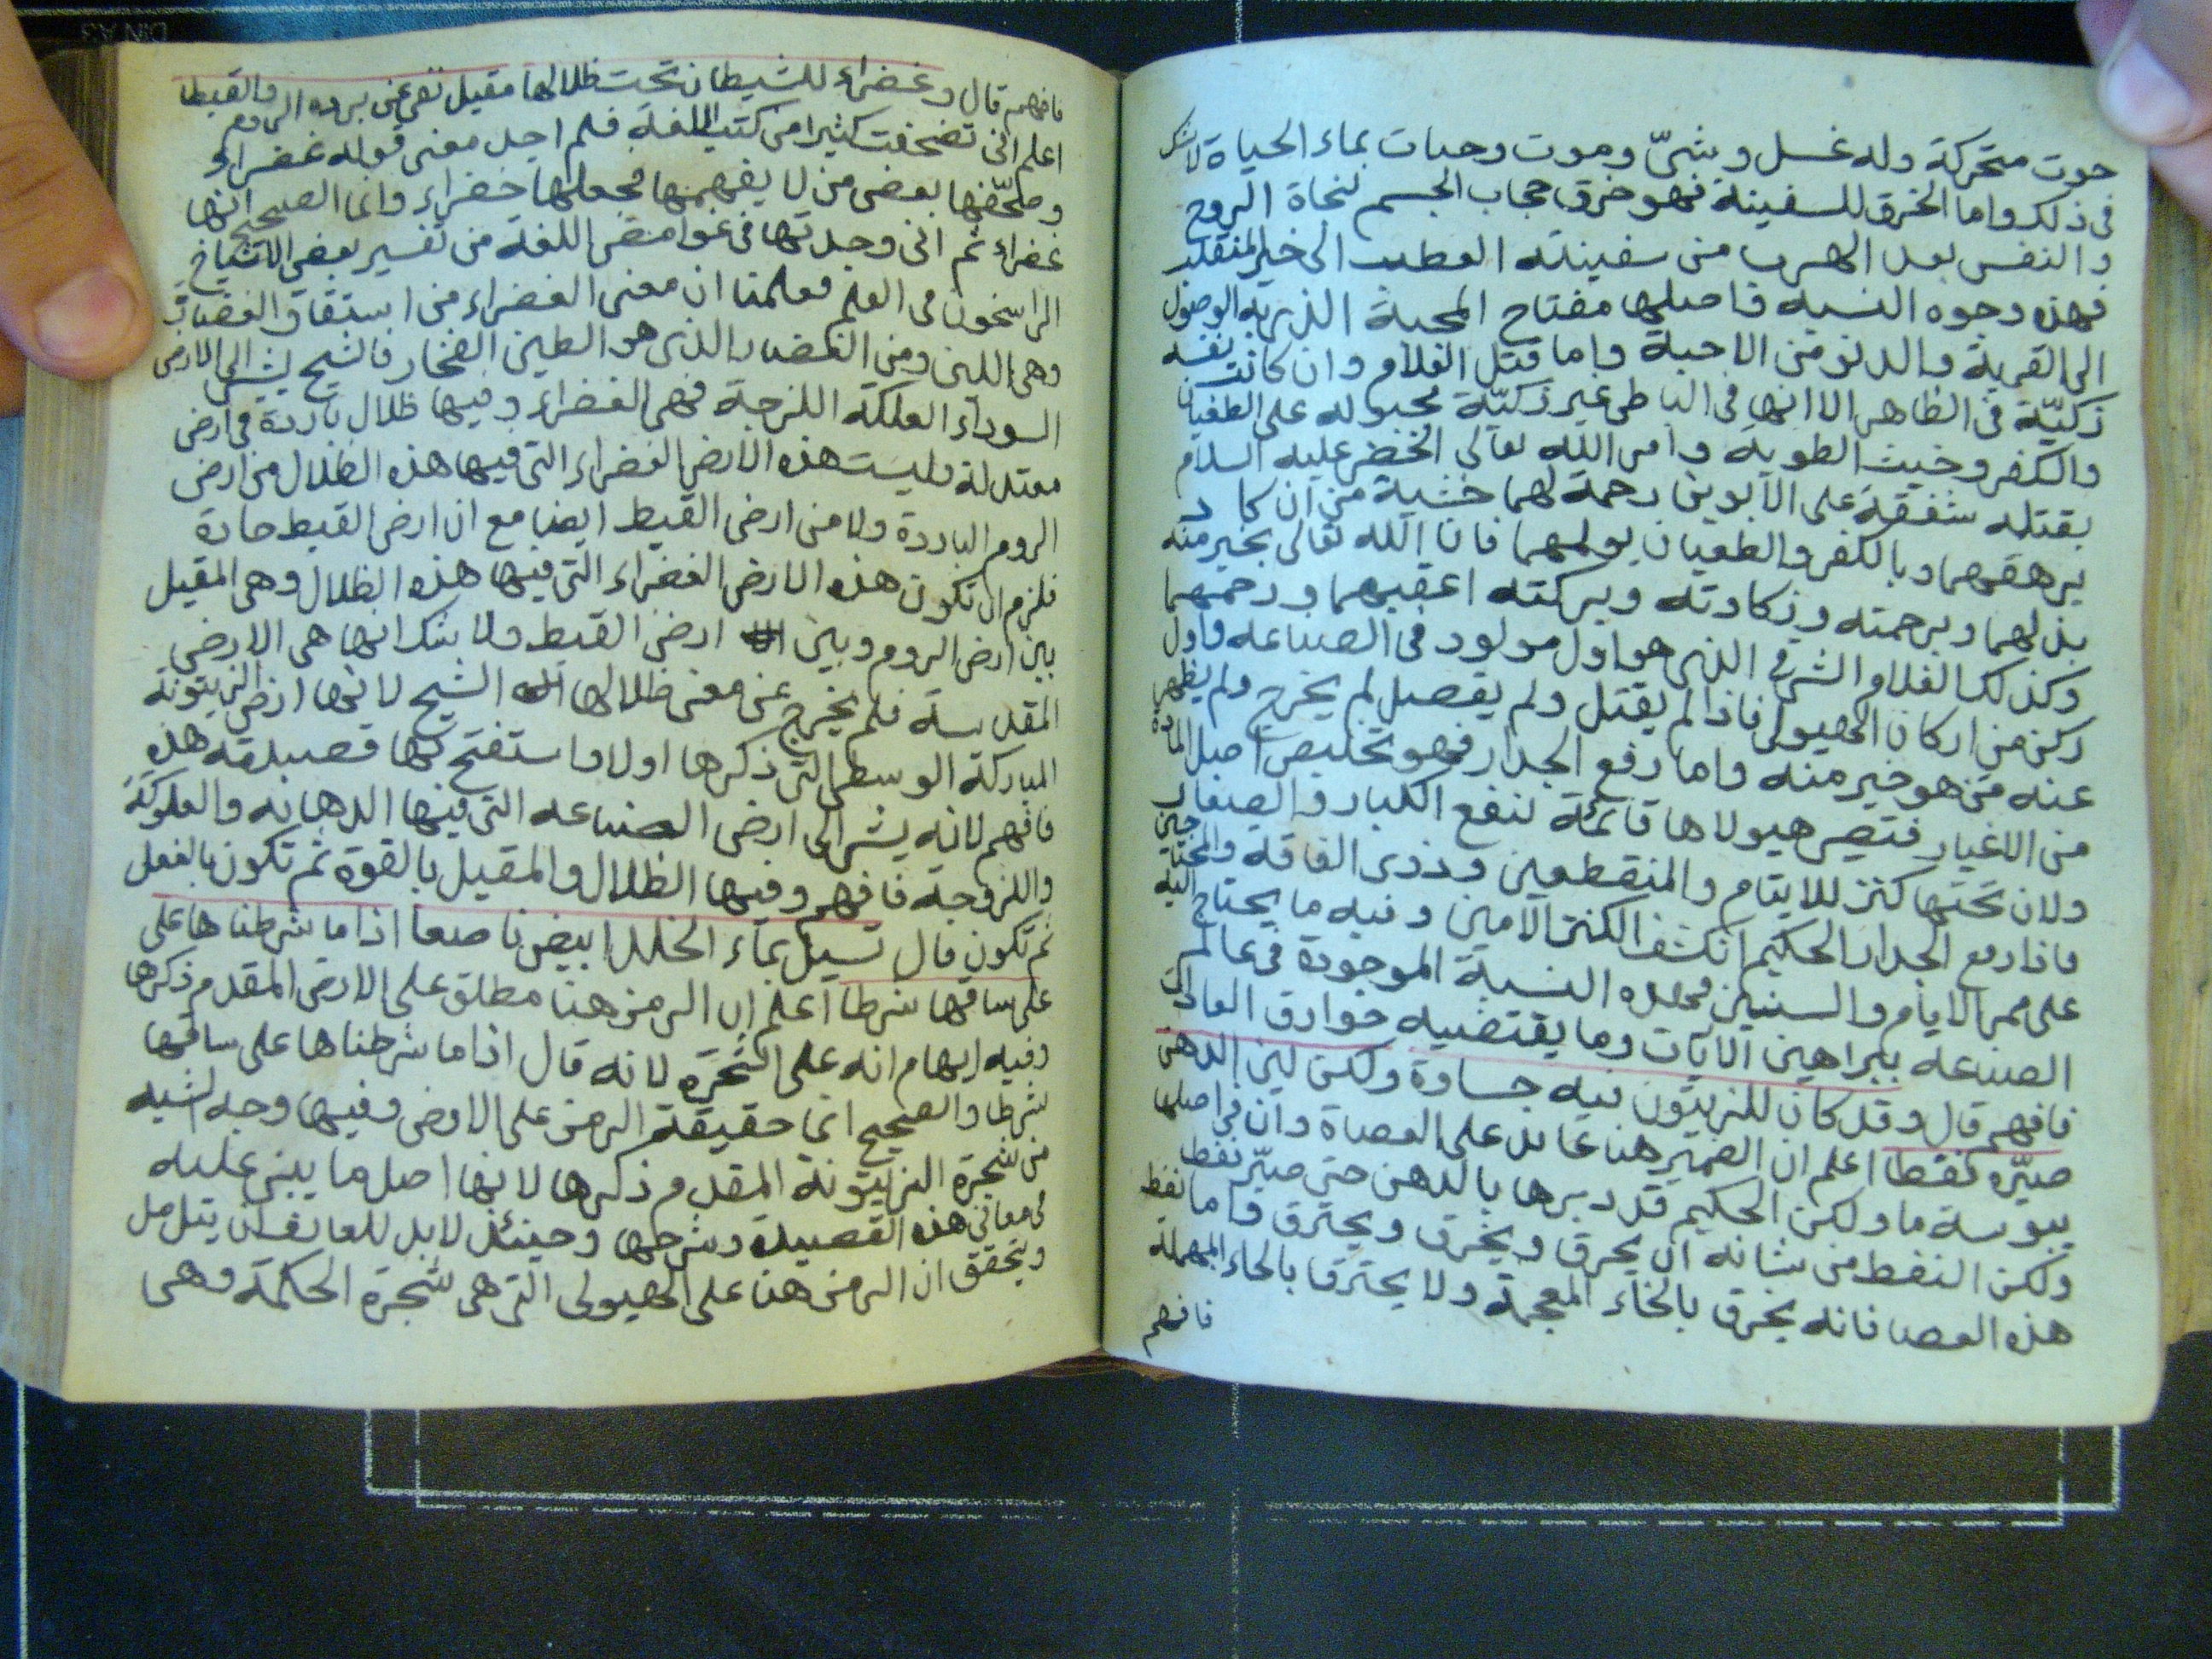 حوت متحركة وله غسل وشيّ وموت وحيات بماء الحياة لا شك
في ذلك واما الخرق للسفينة فهو خرق حجاب الجسم لنجاة الروح
والنفس بعد الهرب من سفينته العطب الى خير المنقلب
فهذه وجوه النسبه فاصلها مفتاح المحبة الذي به الوصول
الى القربة والدنو من الاحبة واما قتل الغلام وان كانت نفسه
زكيّة في الظاهر الا انها في الباطن غير زكيّة مجبوله على الطغيان
والكفر وخبث الطوية وامر الله تعالى الخضر عليه السلام
بقتله شفقة على الابوين رحمة لهما خشية من ان كاد
يرهقهما وبالكفر والطغيان يولمهما فان الله تعالى بخير منه
بدلهما وبرحمته وزكاوته وبركته اعقبهما ورحمهما
وكذلك الغلام الشرقي الذي هو اول مولود في الصناعه واول
ركن من اركان الهيولى فاذا لم يقتل ولم يفصل لم يخرج ولم يظهر
عنه من هو خير منه واما رفع الجدار فهو تخليص اصل المادة
من الاغيار فتصير هيولاها قائمة لنفع الكبار والصغار
ولان تحتها كنز للايتام والمنقطعين وذوى الفاقه والمحتاجين
فاذا رفع الجدار الحكيم انكشف الكنز الامين وفيه ما يحتاج اليه
على ممر الايام والسنين فهذه النسبة الموجودة في عالم
الصناعه ببراهين الايات وما يقتضيه خوارق العادات
فافهم قال وقد كان للزيتون فيه جساوة ولكن لين الدهن
صيّره نفطا اعلم ان الضمير هنا عائد على العصاة وان في اصلها
يبوسة ما ولكن الحكيم قد دبرها بالدهن حتى صيّر نفطا
ولكن النفط من شانه ان يحرق ويخرق ويحترق واما نفط
هذه العصا فانه يخرق بالخاء المعجمة ولا يحترق بالحاء المهملة
فافهم
فافهم قال وغضراء للشيطان تحت ظلالها مقيل نفى عن برده الروم والقبطا
اعلم انى تصحفت كثيرا من كتب اللغة فلم اجد معنى قوله غضراء
وصحّفها بعض من لا يفهمها فجعلها خضراء وانما الصحيح انها
غضراء ثم انى وجدتها في غوامض اللغة من تفسير بعض الاشياخ
الراسخون في العلم فعلمنا ان معنى الغضراء من اشتقاق الغضارة
وهي اللين ومن الغضار الذى هو الطين الفخار فالشيح يشير الى الارض
السوداء العلكة اللزجة فهى الغضراء وفيها ظلال باردة في ارض
معتدلة وليست هذه الارض الغضراء التى فيها هذه الظلال من ارض
الروم الباردة ولا من ارض القبط ايضا مع ان ارض القبط حارة
فلزم ان تكون هذه الارض الغضراء التى فيها هذه الظلال وهى المقيل
بين ارض الروم وبين ارض القبط ولا شك انها هى الارض
المقدسة فلم يخرج عن معنى ظلالها الشيح لانها ارض الزيتونة
المباركة الوسطى التى ذكرها اولا واستفتح بها قصيدته هذه
فافهم لانه يشير الى ارض الصناعه التى فيها الدهانه والعلوكة
واللزوجة فافهم وفيها الظلال والمقيل بالقوة ثم تكون بالفعل
ثم تكون قال تسيل بماء الخلد ابيض ناصعا اذا ما شرطناها على
على ساقها شرطا اعلم ان الرمز هنا مطلق على الارض المقدم ذكرها
وفيه ايهام انه على الشجرة لانه قال اذا ما شرطناها على ساقها
شرطا والصحيح انما حقيقة الرمز على الارض وفيها وجه الشبه
من شجرة الزيتونة المقدم ذكرها لانها اصل ما يبنى عليه
في معانى هذه القصيدة وشرحها وحينئذ لابد للعارف ان يتامل
ويتحقق ان الرمز هنا على الهيولى التى هى شجرة الحكمة وهى